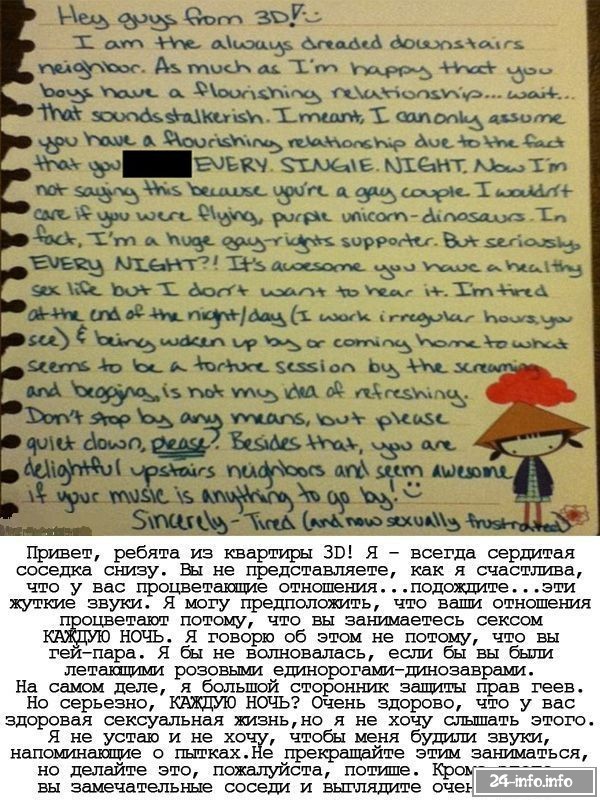 Hey guys from 3D! :)
I am the always dreaded downstairs
neighbor. As much as I'm happy that you
boys have a flourishing relationship... wait...
that sounds stalkerish. I meant, I can only assume
you have a flourishing relationship due to the fact
that you EVERY. SINGLE. NIGHT. Now I'm
not saying this because you're a gay couple. I wouldn't
care if you were flying, purple unicorn-dinosaurs. In
fact, I'm a huge gay-rights supporter. But seriously,
EVERY NIGHT?! It's awesome you have a healthy
sex life but I don't want to hear it. I'm tired
at the end of the night/day (I work irregular hours, you
see) & being woken up by or coming home to what
seems to be a torture session by the screaming
and begging, is not my idea of refreshing.
Don't stop by any means, but please
quiet down, please? Besides that, you are
delightful upstairs neighbors and seem awesome
if your music is anything to go by! :)
Sincerely - Tired (and now sexually frustrated)
Привет, ребята из квартиры 3D! Я – всегда сердитая
соседка снизу. Вы не представляете, как я счастлива,
что у вас процветающие отношения...подождите...эти
жуткие звуки. Я могу предположить, что ваши отношения
процветают потому, что вы занимаетесь сексом
КАЖДУЮ НОЧЬ. Я говорю об этом не потому, что вы
гей-пара. Я бы не волновалась, если бы вы были
летающими розовыми единорогами-динозаврами.
На самом деле, я большой сторонник защиты прав геев.
Но серьезно, КАЖДУЮ НОЧЬ? Очень здорово, что у вас
здоровая сексуальная жизнь,но я не хочу слышать этого.
Я не устаю и не хочу, чтобы меня будили звуки,
напоминающие о пытках.Не прекращайте этим заниматься,
но делайте это, пожалуйста, потише. Кроме
вы замечательные соседи и выглядите
24-info.info